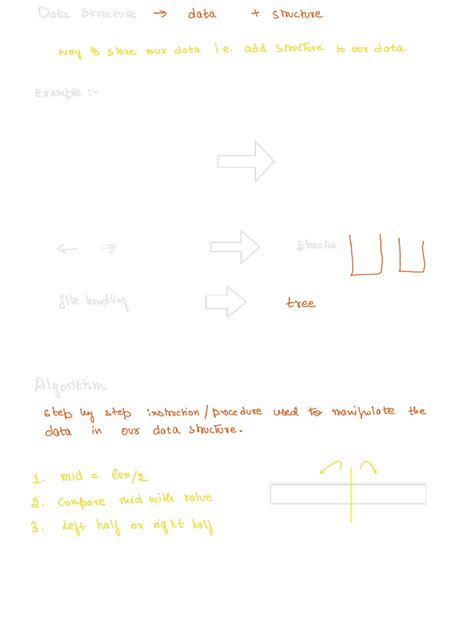 Data Structure → data + structure
way to store our data i.e. add structure to our data.
example :-
← → stacks
file handling tree
Algorithm
step by step instruction / procedure used to manipulate the
data in our data structure.
1. mid = len/2
2. compare mid with value
3. left half or right half